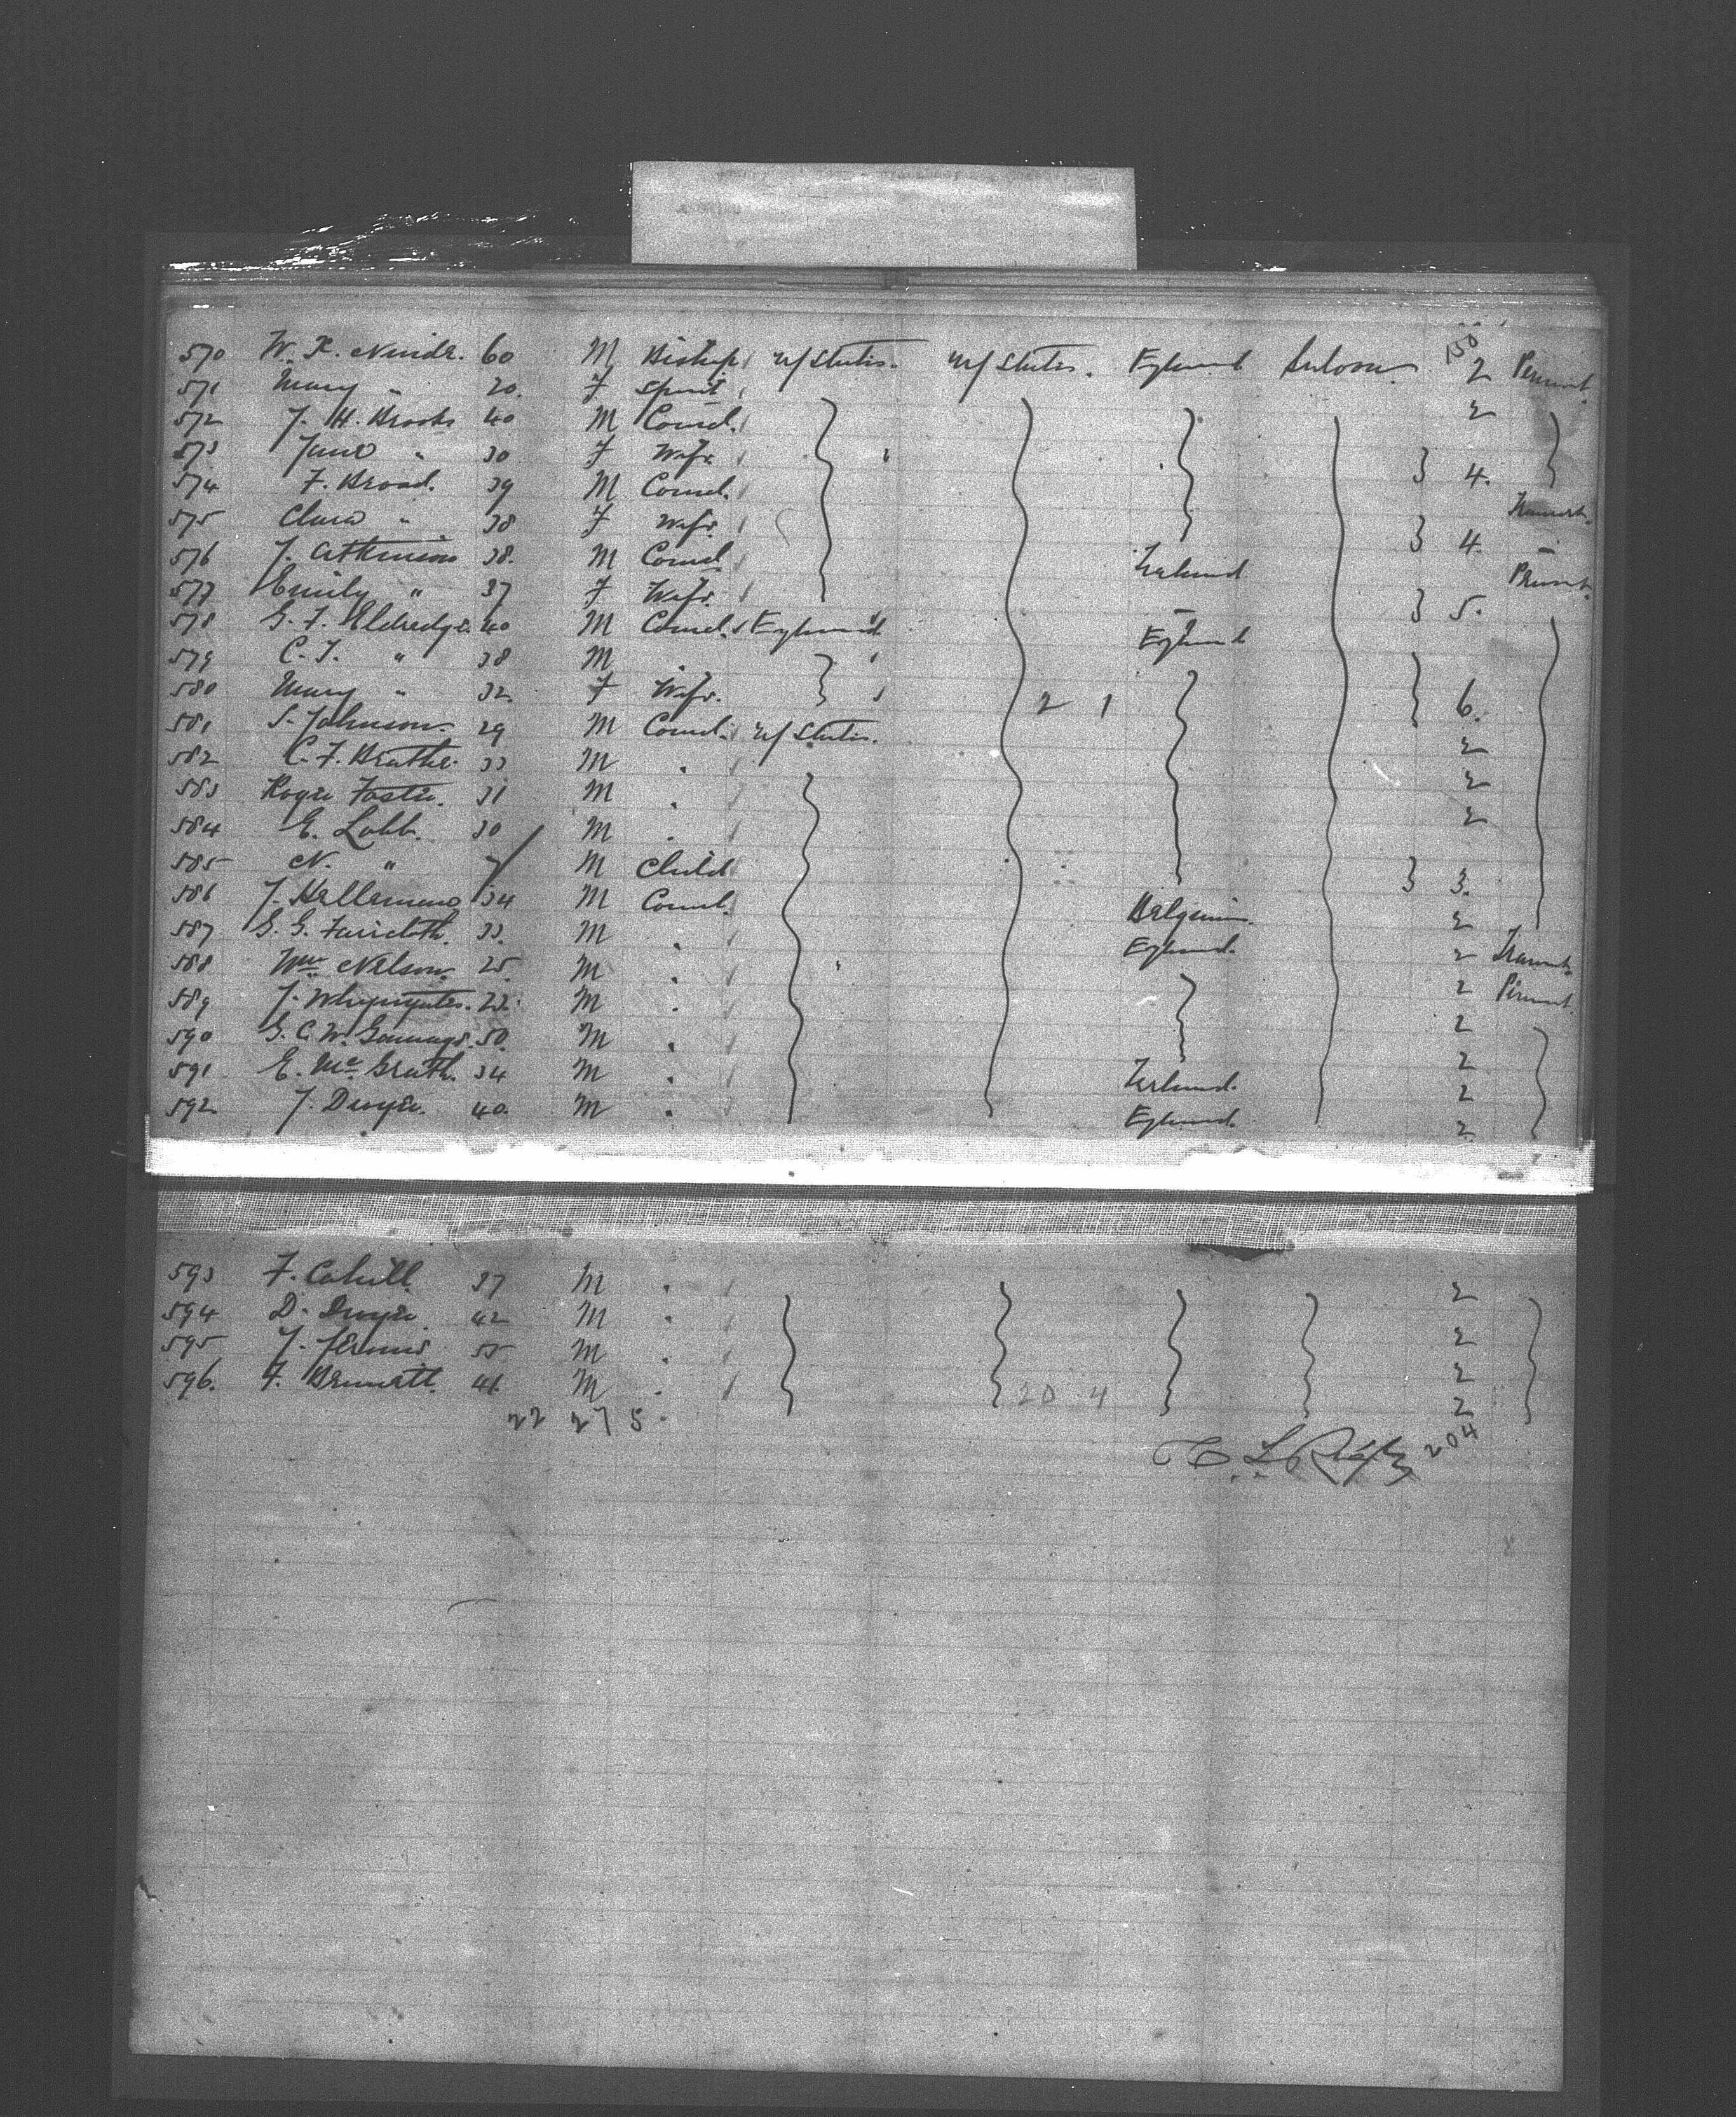 570 W. X. Ninde. 60 M Bishop U/States. U/States. England Saloon 150 2 Permnt.
571 Mary " 20. F Spinst 2
572 J. H. Brooks 40 M Comcl.
573 Jane " 30 F Wife } 4.
574 F. Broad. 39 M Comcl.
575 Clara " 38 F Wife } 4.
576 J. Atkinson 38. M Comcl Ireland
577 Emily " 37 F Wife. } 5.
578 G. F. Eldredge. 40 M Comcl. England England
579 C. F. " 38 M
580 Mary " 32. F Wife. 2 1 } 6.
581 S. Johnson. 29 M Comcl. U/States. 2
582 C. F. 33 M " 2
583 Roger Foster. 31 M " 2
584 E. Lobb. 30 M "
585 N. " 7 M Child } 3.
586 34 M Comcl. Belgium. 2
587 G. G. Faircloth. 33. M " England. 2
588 Wm Nelson. 25 M " 2 Permnt.
589 M " 2
590 G. C. W. 50. M " 2
591 E. McGrath. 34 M " Ireland. 2
592 J. Dwyer. 40. M " England. 2
593 F. Cahill. 37 M " 2
594 D. Dwyer. 42 M " 2
595 J. 55 M " 2
596. F. 41 M " 20 4 2
22 27 5 204